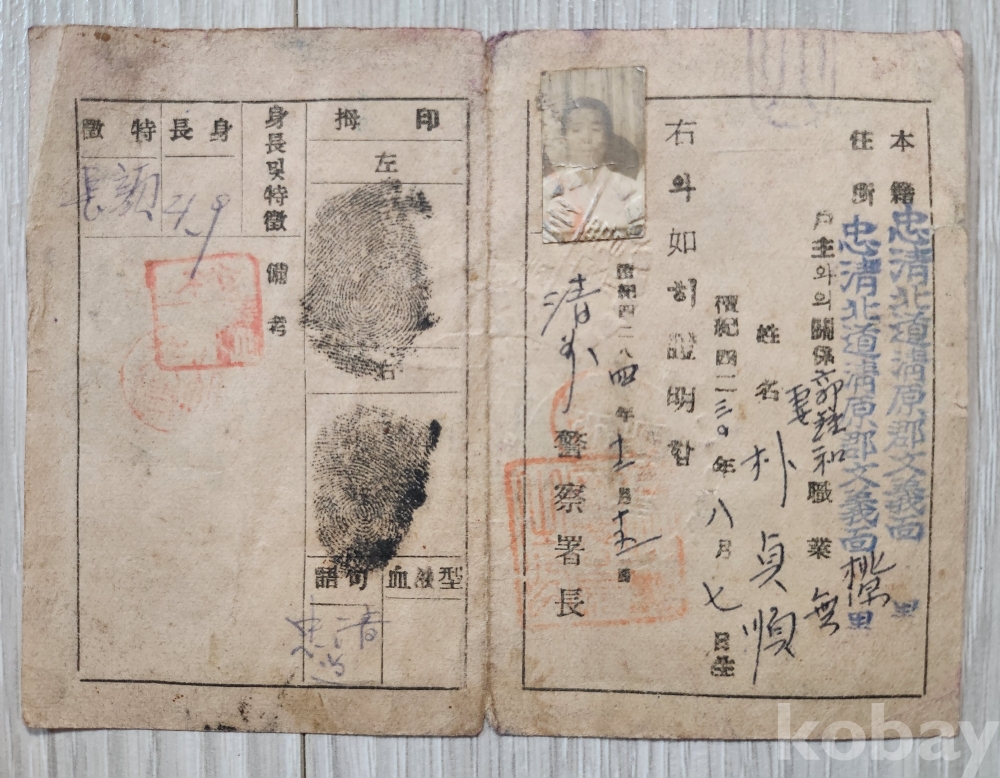 本籍 忠清北道清原郡文義面 里
住所 忠清北道清原郡文義面桃源里
戶主와의關係 妻 職業 無
姓名 朴貞順
檀紀四二三〇年八月七日生
右와如히證明함
檀紀四二八四年十二月 日
清州警察署長
印 拇
左
右
型液血
語句
忠清
身長및特徵
身長
4.9
特徵
長顔
備考
kobay